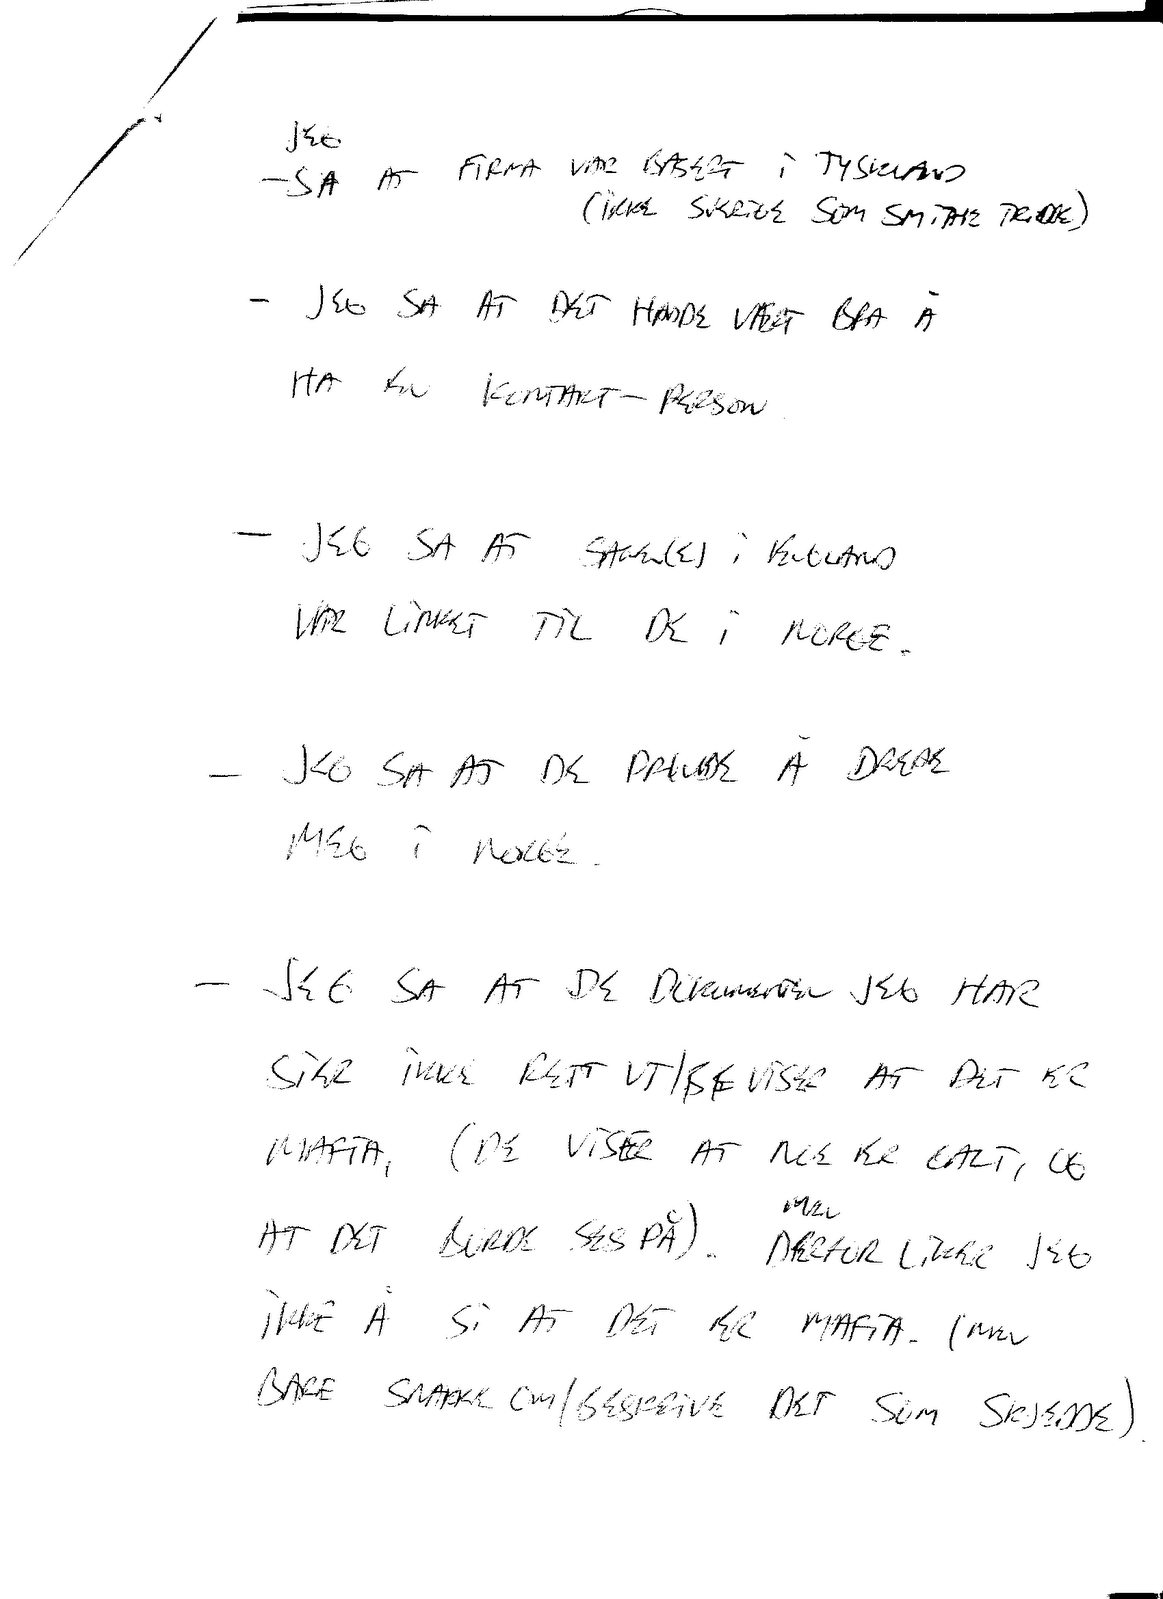 JEG
- SA AT FIRMA VAR BASERT I TYSKLAND
(IKKE SVERIGE SOM SMITHE TRODDE)
- JEG SA AT DET HADDE VÆRT BRA Å
HA EN KONTAKT-PERSON.
- JEG SA AT SAKEN(E) I ENGLAND
VAR LINKET TIL DE I NORGE.
- JEG SA AT DE PRØVDE Å DREPE
MEG I NORGE.
- JEG SA AT DE DOKUMENTEN JEG HAR
SIER IKKE RETT UT/BEVISER AT DET ER
MAFIA, (DE VISER AT NOE ER GALT, OG
AT DET BURDE SES PÅ). MEN
DERFOR LIKER JEG
IKKE Å SI AT DET ER MAFIA. (MEN
BARE SNAKKE OM/BESKRIVE DET SOM SKJEDDE).